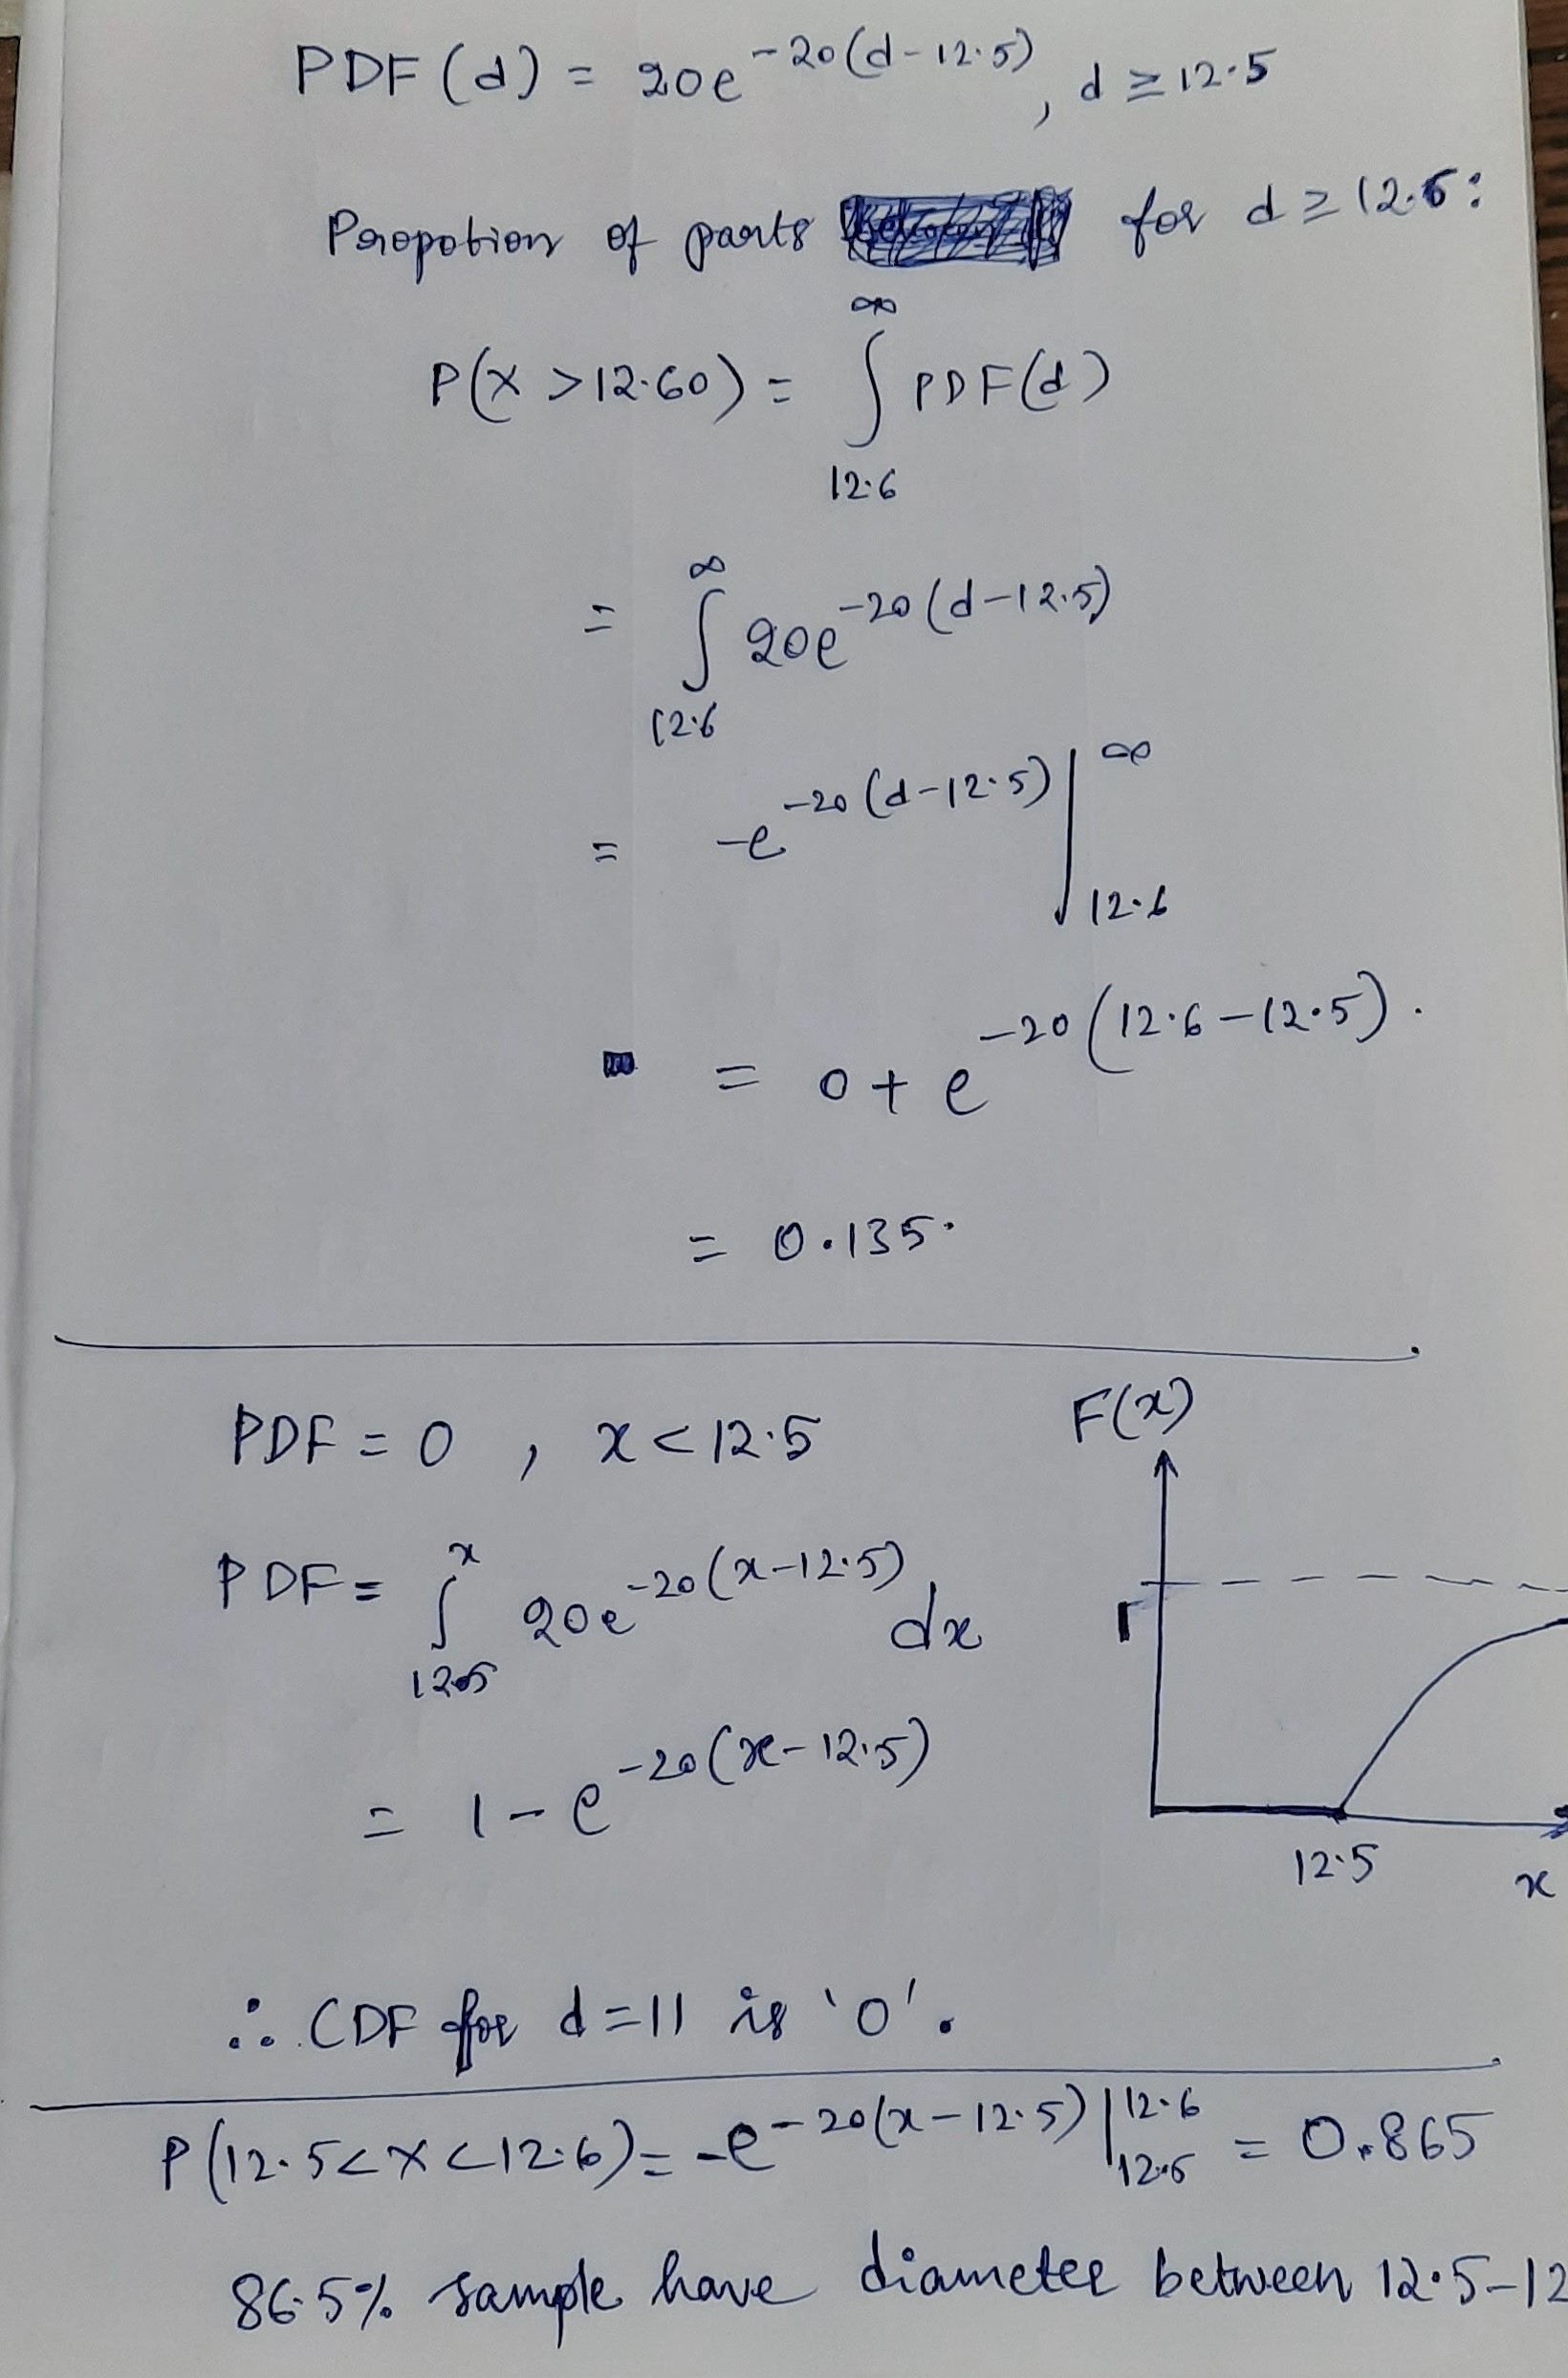 PDF (d) = 20e^{-20(d-12.5)}, d ≥ 12.5
Poropotion of parts for d ≥ 12.6:
P(X > 12.60) = ∫_{12.6}^{∞} PDF(d)
= ∫_{12.6}^{∞} 20e^{-20(d-12.5)}
= -e^{-20(d-12.5)} |_{12.6}^{∞}
= 0 + e^{-20(12.6-12.5)}.
= 0.135.
PDF = 0 , x < 12.5
PDF = ∫_{12.5}^{x} 20e^{-20(x-12.5)} dx
= 1 - e^{-20(x-12.5)}
F(x)
1
12.5
x
∴ CDF for d=11 is '0'.
P(12.5<X<12.6) = -e^{-20(x-12.5)} |_{12.5}^{12.6} = 0.865
86.5% sample have diameter between 12.5-12